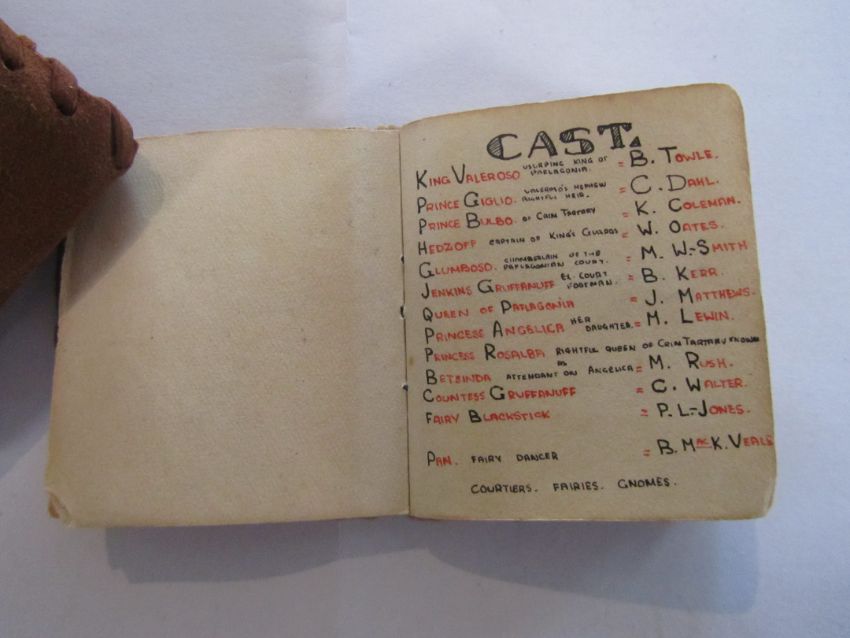 CAST.
KING VALEROSO USURPING KING OF PAFLAGONIA. = B. TOWLE.
PRINCE GIGLIO. VALEROSO'S NEPHEW RIGHTFUL HEIR. = C. DAHL.
PRINCE BULBO. OF CRIM TARTARY = K. COLEMAN.
HEDZOFF CAPTAIN OF KING'S GUARDS = W. OATES.
GLUMBOSO. CHAMBERLAIN OF THE PAFLAGONIAN COURT. = M. W.-SMITH
JENKINS GRUFFANUFF EX. COURT FOOTMAN. = B. KERR.
QUEEN OF PAFLAGONIA = J. MATTHEWS.
PRINCESS ANGELICA HER DAUGHTER. = M. LEWIN.
PRINCESS ROSALBA RIGHTFUL QUEEN OF CRIM TARTARY KNOWN
BETSINDA AS ATTENDANT ON ANGELICA = M. RUSH.
COUNTESS GRUFFANUFF = C. WALTER.
FAIRY BLACKSTICK = P. L.-JONES.
PAN. FAIRY DANCER = B. MacK. VEALE
COURTIERS. FAIRIES. GNOMES.